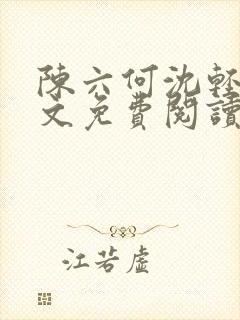 陳六何沈輕
文免費閱讀
江若虛